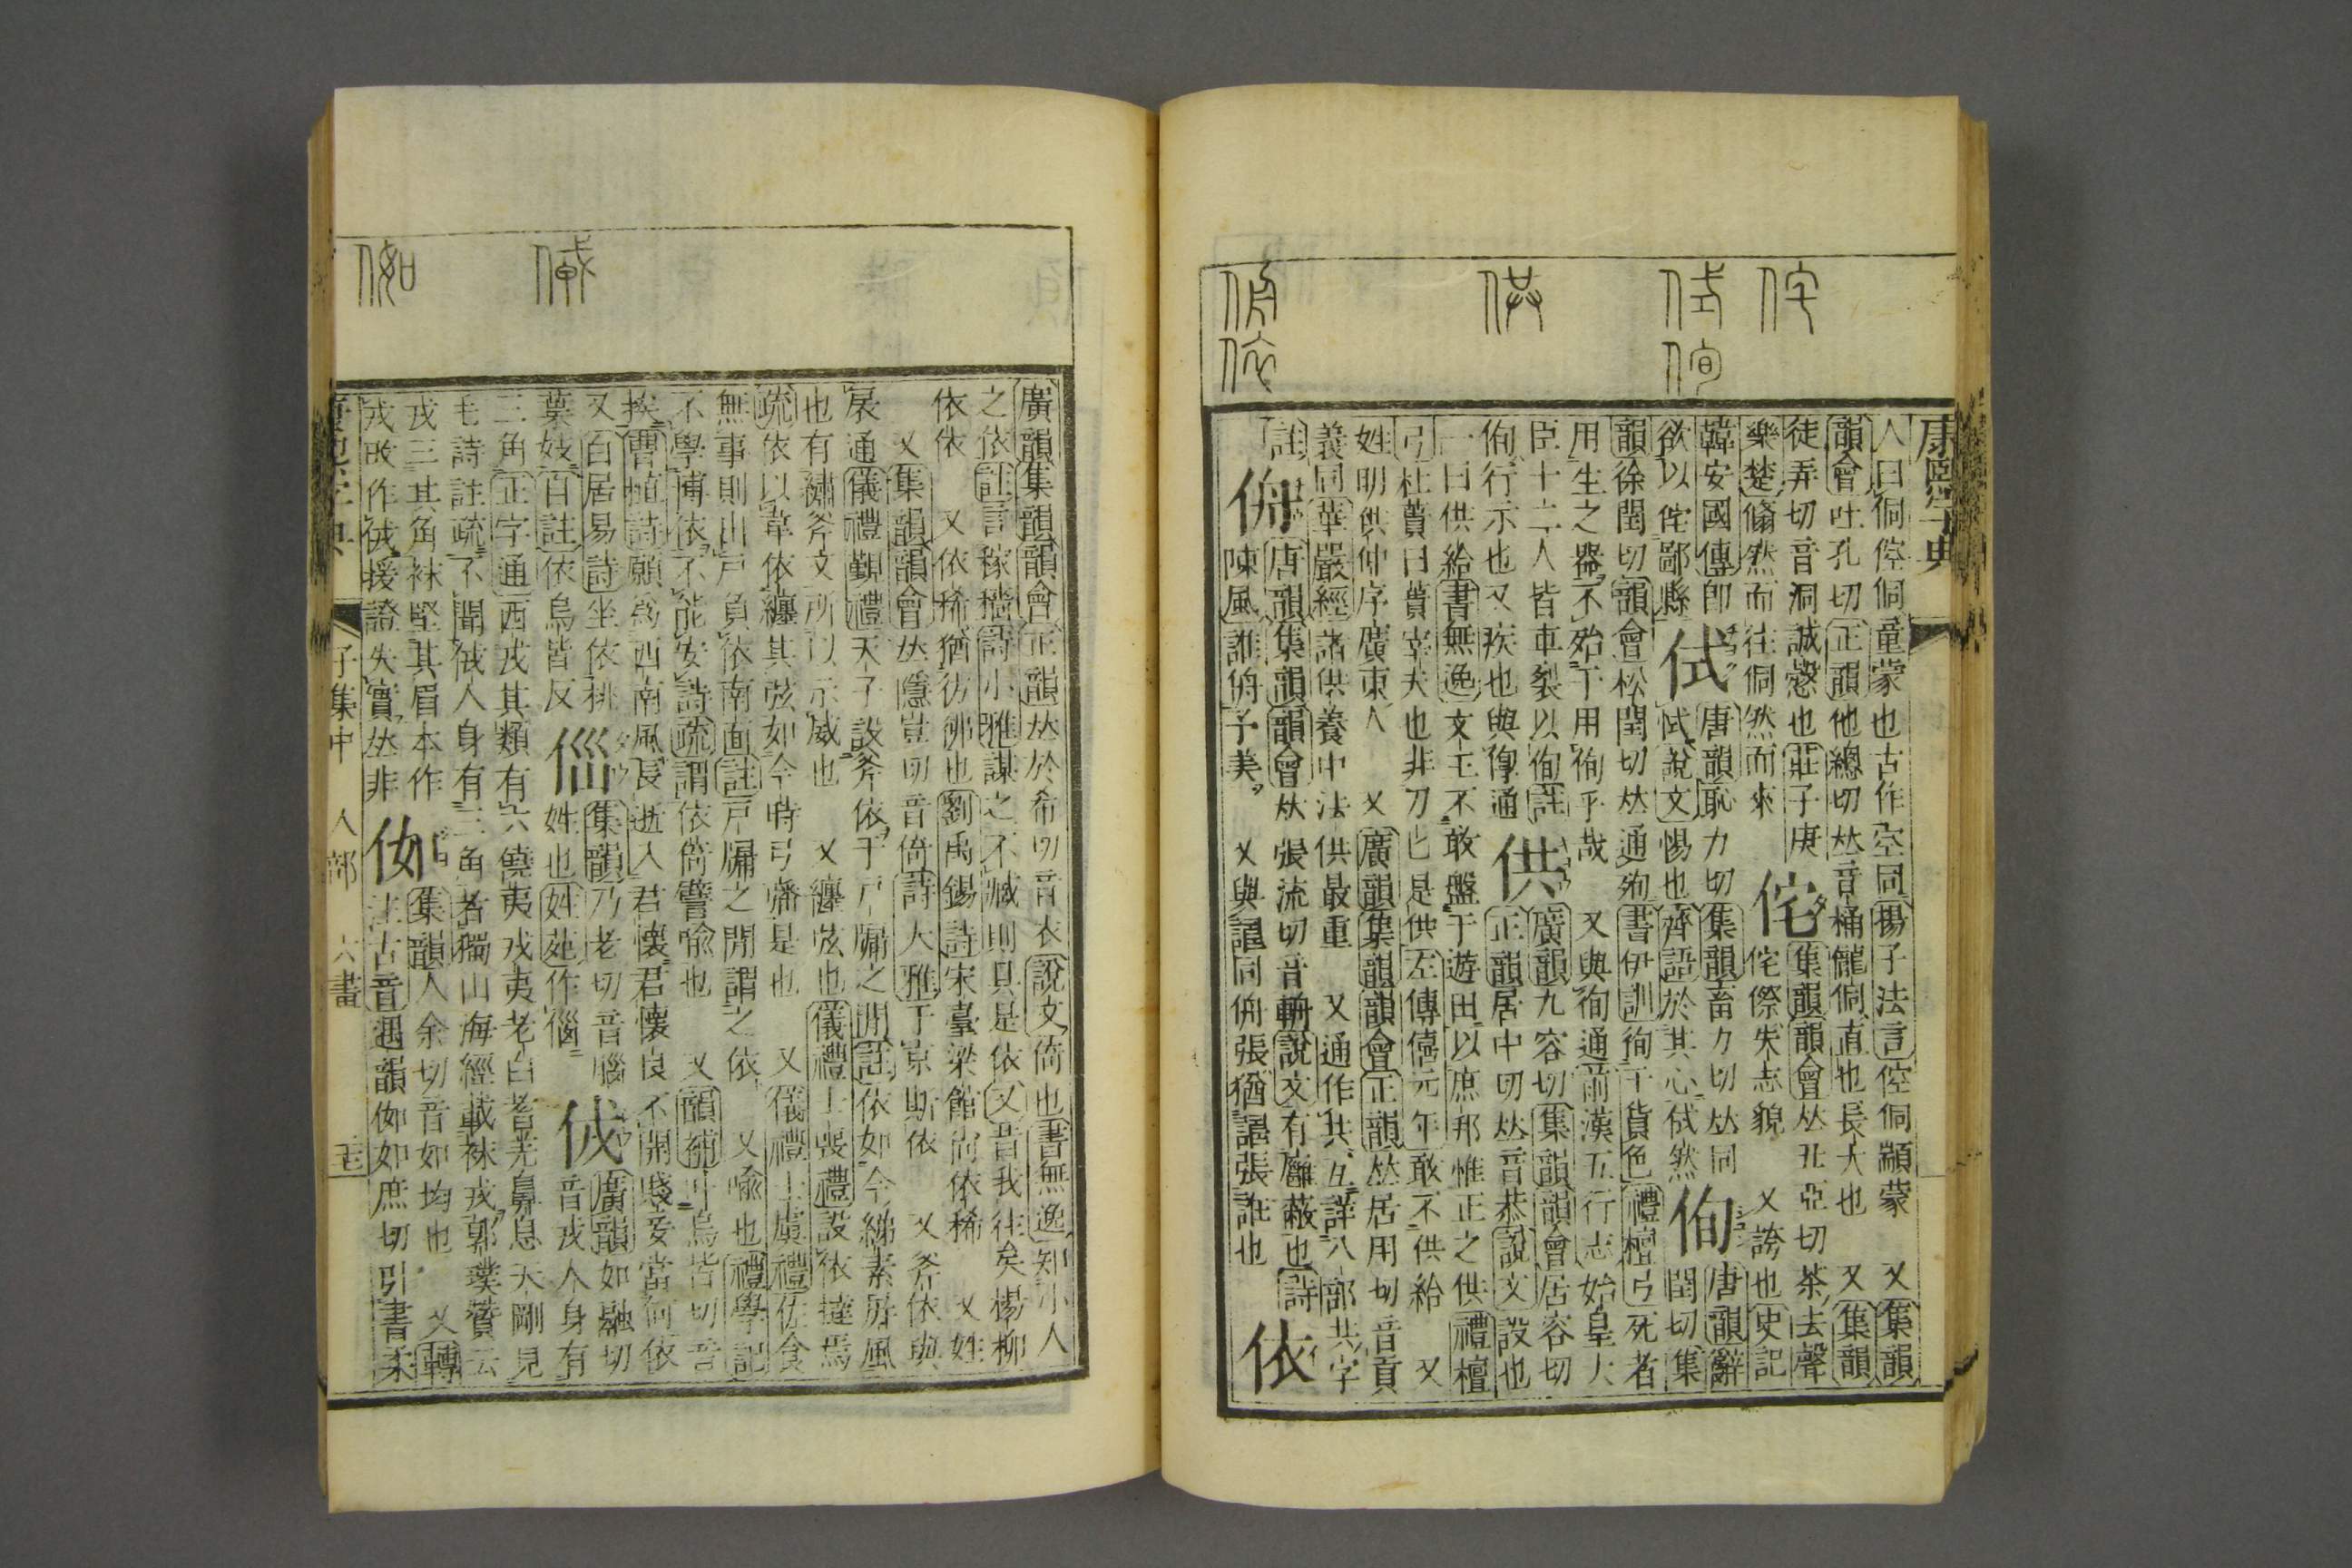 康熙字典
人曰侗倥侗童蒙也古作空同揚子法言倥侗顓蒙 又集韻
韻會吐孔切正韻他總切𠀤音桶儱侗直也長大也 又集韻
徒弄切音洞誠慤也莊子庚
桑楚翛然而往侗然而來
侘
集韻韻會𠀤丑亞切茶去聲
侘傺失志貌 又誇也史記
韓安國傳卽
欲以侘鄙縣
侙
唐韻恥力切集韻畜力切𠀤同
恜說文惕也齊語於其心侙然
侚
唐韻辭
閏切集
韻徐閏切韻會松閏切𠀤通殉書伊訓侚于貨色禮檀弓死者
用生之器不殆于用侚乎哉 又與徇通前漢五行志始皇大
臣十二人皆車裂以侚註
侚行示也又疾也與侚通
供
廣韻九容切集韻韻會居容切
正韻居中切𠀤音恭說文設也
一曰供給書無逸文王不敢盤于遊田以庶邦惟正之供禮檀
弓杜蕢曰蕢宰夫也非刀匕是供左傳僖元年敢不供給 又
姓明供仲序廣東人 又廣韻集韻韻會正韻𠀤居用切音貢
義同華嚴經諸供養中法供最重 又通作共互詳八部共字
註
侜
唐韻集韻韻會𠀤張流切音輈說文有廱蔽也詩
陳風誰侜予美 又與譸同侜張猶譸張誑也
依
廣韻集韻韻會正韻𠀤於希切音衣說文倚也書無逸知小人
之依註言稼穡詩小雅謀之不臧則具是依又昔我往矣楊柳
依依 又依稀猶彷彿也劉禹錫詩宋臺梁館尚依稀 又姓
又集韻韻會𠀤隱豈切音倚詩大雅于京斯依 又斧依與
扆通儀禮覲禮天子設斧依于戶牖之閒註依如今綈素屛風
也有繡斧文所以示威也 又纏弦也儀禮士喪禮設依撻焉
疏依以韋依纏其弦如今時弓𩎖是也 又儀禮士虞禮佐食
無事則出戶負依南面註戶牖之閒謂之依 又喩也禮學記
不學博依不能安詩疏謂依倚譬喩也 又韻補叶烏皆切音
挨曹植詩願爲西南風長逝入君懷君懷良不開賤妾當何依
又白居易詩坐依桃
葉妓自註依烏皆反
𠈯
集韻乃老切音腦
姓也姓苑作㑎
𠈋
廣韻如融切
音戎人身有
三角正字通西戎其類有六僥夷戎夷老白耆羌鼻息天剛見
毛詩註疏不聞𠈋人身有三角者獨山海經載䄛戎郭璞贊云
戎三其角䄛堅其眉本作
戎改作𠈋援證失實𠀤非
㑚
集韻人余切音如均也 又轉
注古音遇韻㑚如庶切引書柔
康熙字典
子集中 人部 六畫